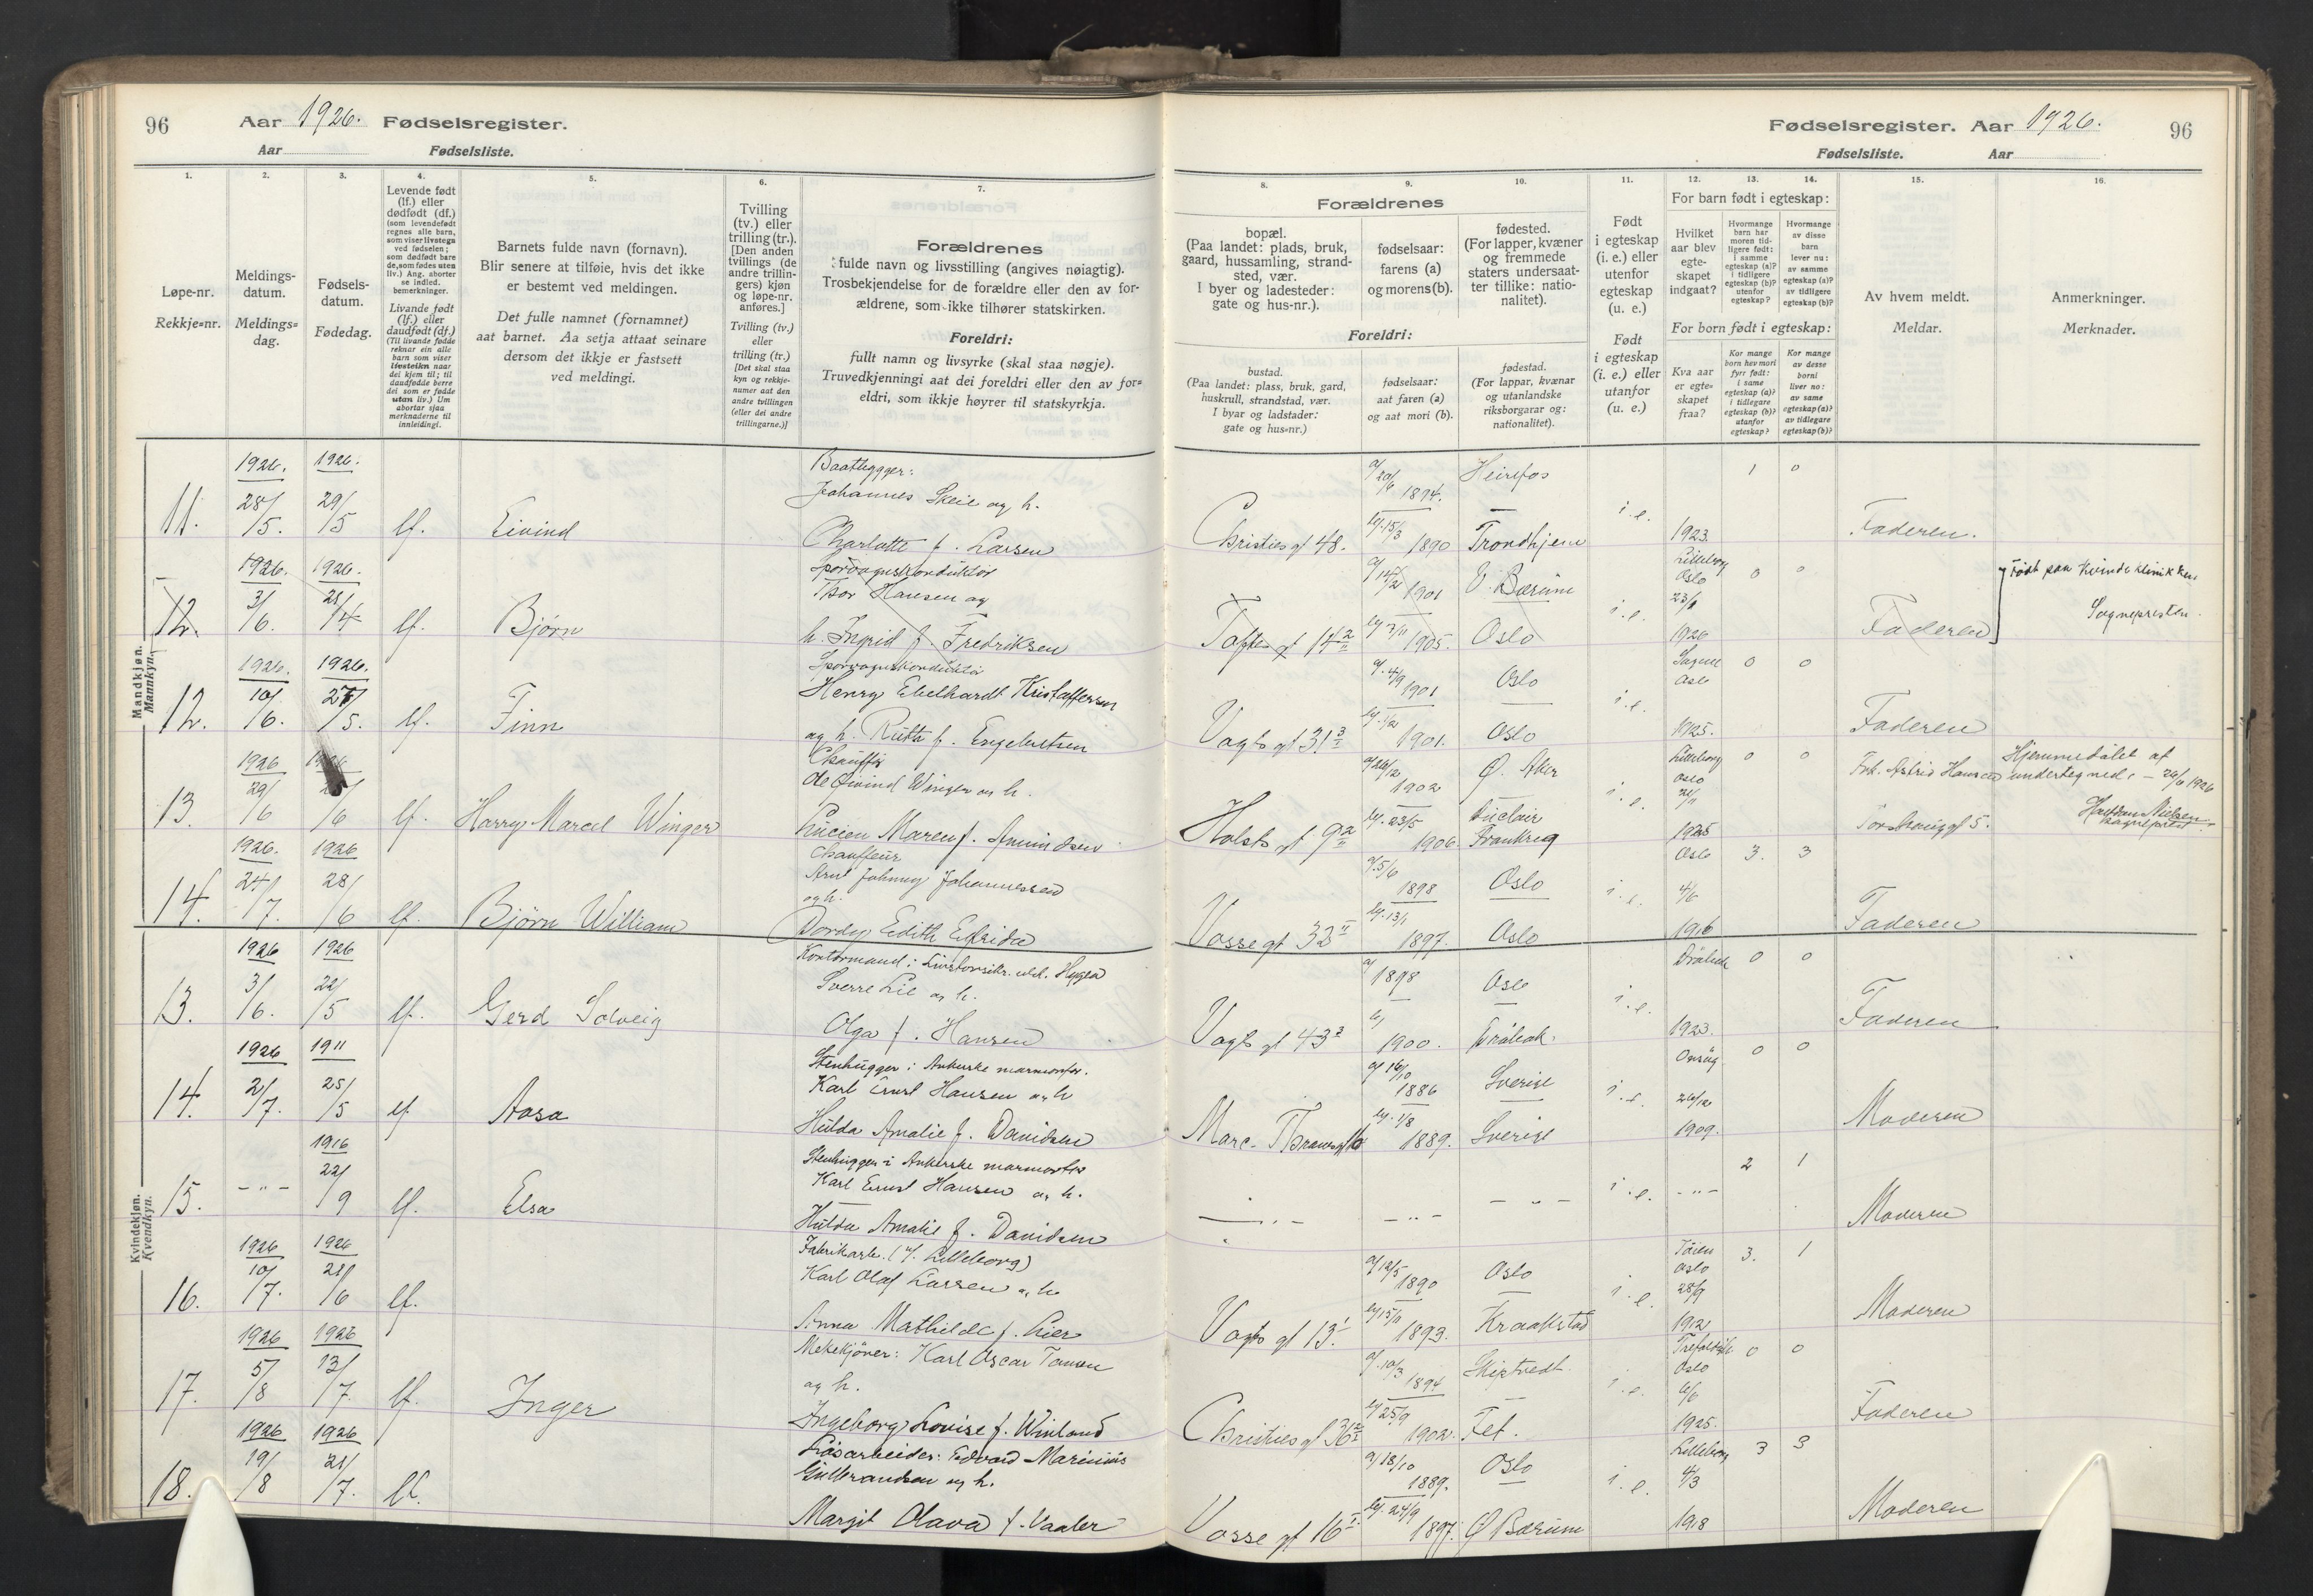 96
Aar 1926. Fødselsregister.
Aar Fødselsliste.
Fødselsregister. Aar 1926.
96
Fødselsliste. Aar
1.
Løpe-nr.
Rekkje=nr.
2.
Meldings-
datum.
Meldings=
dag.
3.
Fødsels-
datum.
Fødedag.
4.
Levende født
(lf.) eller
dødfødt (df.)
(som levendefødt
regnes alle barn,
som viser livstegn
ved fødselen;
som dødfødt bare
de, som fødes uten
liv.) Ang. aborter
se indled.
bemerkninger.
Livande født
(lf.) eller
daudfødt (df.)
(Til livande fødde
reknar ein alle
barn som viser
livsteikn naar
dei kjem til; til
daudfødde berre
dei som er fødde
utan liv.) Um
abortar sjaa
merknaderne til
innleidingi.
5.
Barnets fulde navn (fornavn).
Blir senere at tilføie, hvis det ikke
er bestemt ved meldingen.
Det fulle namnet (fornamnet)
aat barnet. Aa setja attaat seinare
dersom det ikkje er fastsett
ved meldingi.
6.
Tvilling
(tv.) eller
trilling (tr.).
[Den anden
tvillings (de
andre trillin-
gers) kjøn
og løpe-nr.
anføres.]
Tvilling (tv.)
eller
trilling (tr.)
[Det skal staa
kyn og rekkje-
numer aat den
andre tvillingen
(eller dei andre
trillingarne.)]
7.
Forældrenes
fulde navn og livsstilling (angives nøiagtig).
Trosbekjendelse for de forældre eller den av for-
ældrene, som ikke tilhører statskirken.
Foreldri:
fullt namn og livsyrke (skal staa nøgje).
Truvedkjenningi aat dei foreldri eller den av for=
eldri, som ikkje høyrer til statskyrkja.
Forældrenes
8.
bopæl.
(Paa landet: plads, bruk,
gaard, hussamling, strand-
sted, vær.
I byer og ladesteder:
gate og hus-nr.).
9.
fødselsaar:
farens (a)
og morens (b).
10.
fødested.
(For lapper, kvæner
og fremmede
staters undersaat-
ter tillike: natio-
nalitet).
Foreldri:
bustad.
(Paa landet: plass, bruk, gard,
huskrull, strandstad, vær.
I byar og ladstader:
gate og hus=nr.)
fødselsaar:
aat faren (a)
og aat mori (b).
fødestad.
(For lappar, kvænar
og utanlandske
riksborgarar og:
nationalitet).
11.
Født
i egteskap
(i. e.) eller
utenfor
egteskap
(u. e.)
Født
i egteskap
(i. e.) eller
utanfor
(u. e.)
For barn født i egteskap:
12.
Hvilket
aar blev
egte-
skapet
indgaat?
13.
Hvormange
barn har
moren tid-
ligere født:
i samme
egteskap (a)?
i tidligere
egteskap (b)?
utenfor
egteskap?
14.
Hvormange
av disse
barn
lever nu:
av samme
egteskap (a)?
av tidligere
egteskap (b)?
For born født i egteskap:
Kva aar
er egte=
skapet
fraa?
Kor mange
born hev mori
fyrr født:
i same
egteskap (a)?
i tidlegare
egteskap (b)?
utanfor
egteskap?
Kor mange
av desse
borni
liver no:
av same
egteskap (a)?
av tidlegare
egteskap (b)?
15.
Av hvem meldt.
Meldar.
16.
Anmerkninger.
Merknader.
Mandkjøn.
Mannkyn.
1926. 1926. Baatbygger: 20/6 1894. Heirefos 1 0
11. 28/5. 29/5 lf. Eivind Johannes Skeie og h.
Charlotte f. Larsen Christies gt 48. 15/3 1890 Trondhjem i.e. 1923. Faderen.
1926. 1926. Sporvognskonduktør 1901 V. Bærum Lilleborg Oslo 0 0 Født paa Kvindeklinikken
12. 3/6. 28/4 lf. Bjørn Thor Hansen og
h. Ingrid f. Fredriksen Toftes gt 14 1905. Oslo i.e. 1926 Faderen Sognepresten.
1926. 1926. Sporvognskonduktør 1901 Oslo Sagene Oslo 0 0
12. 10/6. 27/5. lf. Finn Henry Ebelhardt Kristoffersen
og h. Ruth f. Engebretsen Vogts gt 31 1901. Oslo i.e. 1925. Faderen
1926 Chauffør 1902 Ø. Aker Lilleborg Oslo 0 0 Frk. Astrid Hansen Hjemmedøbt af
13. 29/6 lf. Harry Marcel Winger Ole Øivind Winger og h. undertegnede - 1926
Lucien Maren f. Amundsen Holsts gt 9 23/5 1906. Frankrig i.e. 1925 Halfdan Nielsen
sogneprest
1926. 1926 Chauffeur 5/6 1898 Oslo Oslo 3. 3
14. 24/7. 28/6 lf. Bjørn William Arnt Johnny Johannessen
og h.
Dordy Edith Elfrida Vosse gt 32 13/1 1897. Oslo i.e. 4/6 1916 Faderen
Kvindekjøn.
Kvendkyn.
1926 1926 Kontormand i Livsforsikr. selsk. Hygea 1898 Oslo Drøbak 0 0
13. 3/6. 22/5 lf. Gerd Solveig Sverre Lie og h.
Olga f. Hansen Vogts gt 43 1900. Drøbak. i.e. 1923. Faderen
1926 1911 Stenhugger i Ankerske marmorfor. 16/10 1886 Sverige Onsøy 0 0
14. 2/7. 25/5 lf Aasa Karl Ernst Hansen og h
Hulda Amalie f. Davidsen Marc. Thranes gt 1/8 1889. Sverige i.e. 26/12 1909. Moderen
1916 Stenhugger i Ankerske marmorfor 2 1
15. - " - 22/9 lf. Elsa Karl Ernst Hansen og h.
Hulda Amalie f. Davidsen - " - - " - - " - i.e. - " - Moderen
1926 1926 Fabrikarb. (v/ Lilleborg) 12/5 1890 Oslo Tøien Oslo 3. 1
16. 10/7. 28/6 lf. Karl Olaf Larsen og h
Anna Mathilde f. Lier Vogts gt 13 1893. Kraakstad i.e. 1912 Moderen
1926 1926 Karl Oscar 10/3 1894 Skiptvedt. Oslo 0 0
17. 5/8 13/7. lf. Inger og h.
Ingeborg Lovise f. Winland Christies gt 36 25/9 1902. Fet. i.e. 6/6 1925. Faderen
1926 1926 Løsarbeider: Edvard Marinius 18/10 1889. Oslo Lilleborg 3 3
18. 19/8 21/7. lf. Gulbrandsen og h.
Margit Olava f. Vaaler Vosse gt 16 24/9 1897. Ø Bærum i.e. 4/3 1918 Moderen